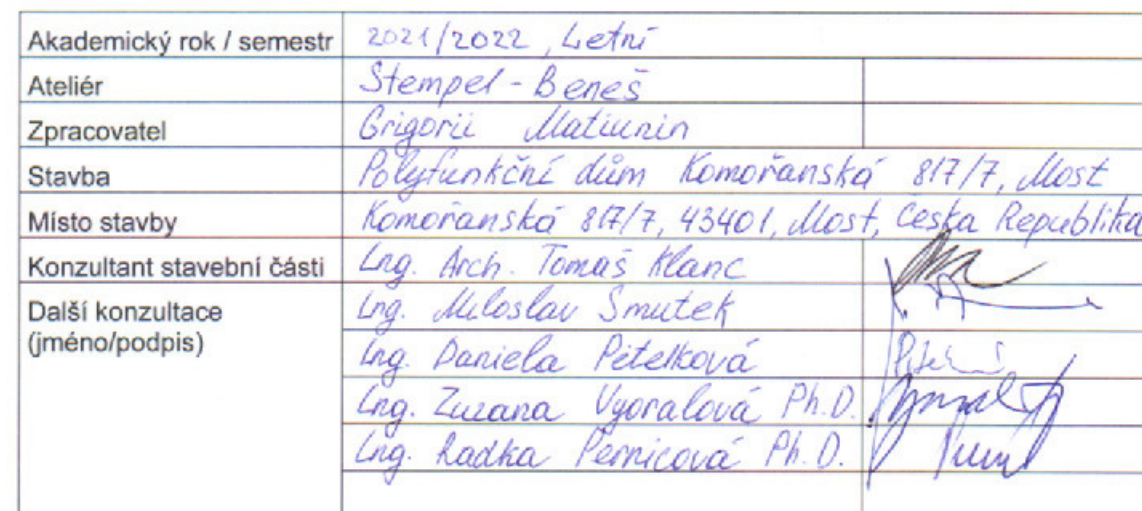 Akademický rok / semestr 2021/2022, Letní
Ateliér Stempel - Beneš
Zpracovatel Grigorii Matiunin
Stavba Polyfunkční dům Komořanská 817/7, Most
Místo stavby Komořanská 817/7, 43401, Most, Česka Republika
Konzultant stavební části Ing. Arch. Tomáš Klanc
Další konzultace Ing. Miloslav Smutek
(jméno/podpis)
Ing. Daniela Pitelková
Ing. Zuzana Vyoralová Ph.D.
Ing. Radka Pernicová Ph.D.